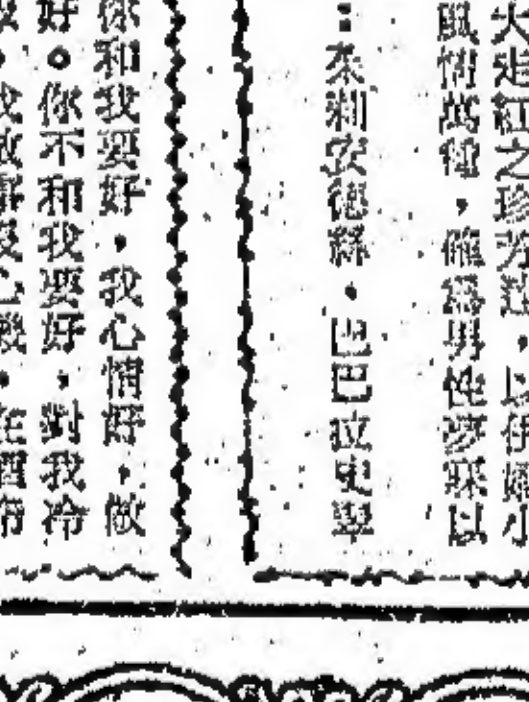 大走紅之珍芳達，以伊赐小
風情萬種，確爲男性夢寐以
：茱莉安德絲，巴巴拉史翠
你和我要好，我心情好，做
好。你不和我要好，對我冷
我做事沒心機，在酒帘